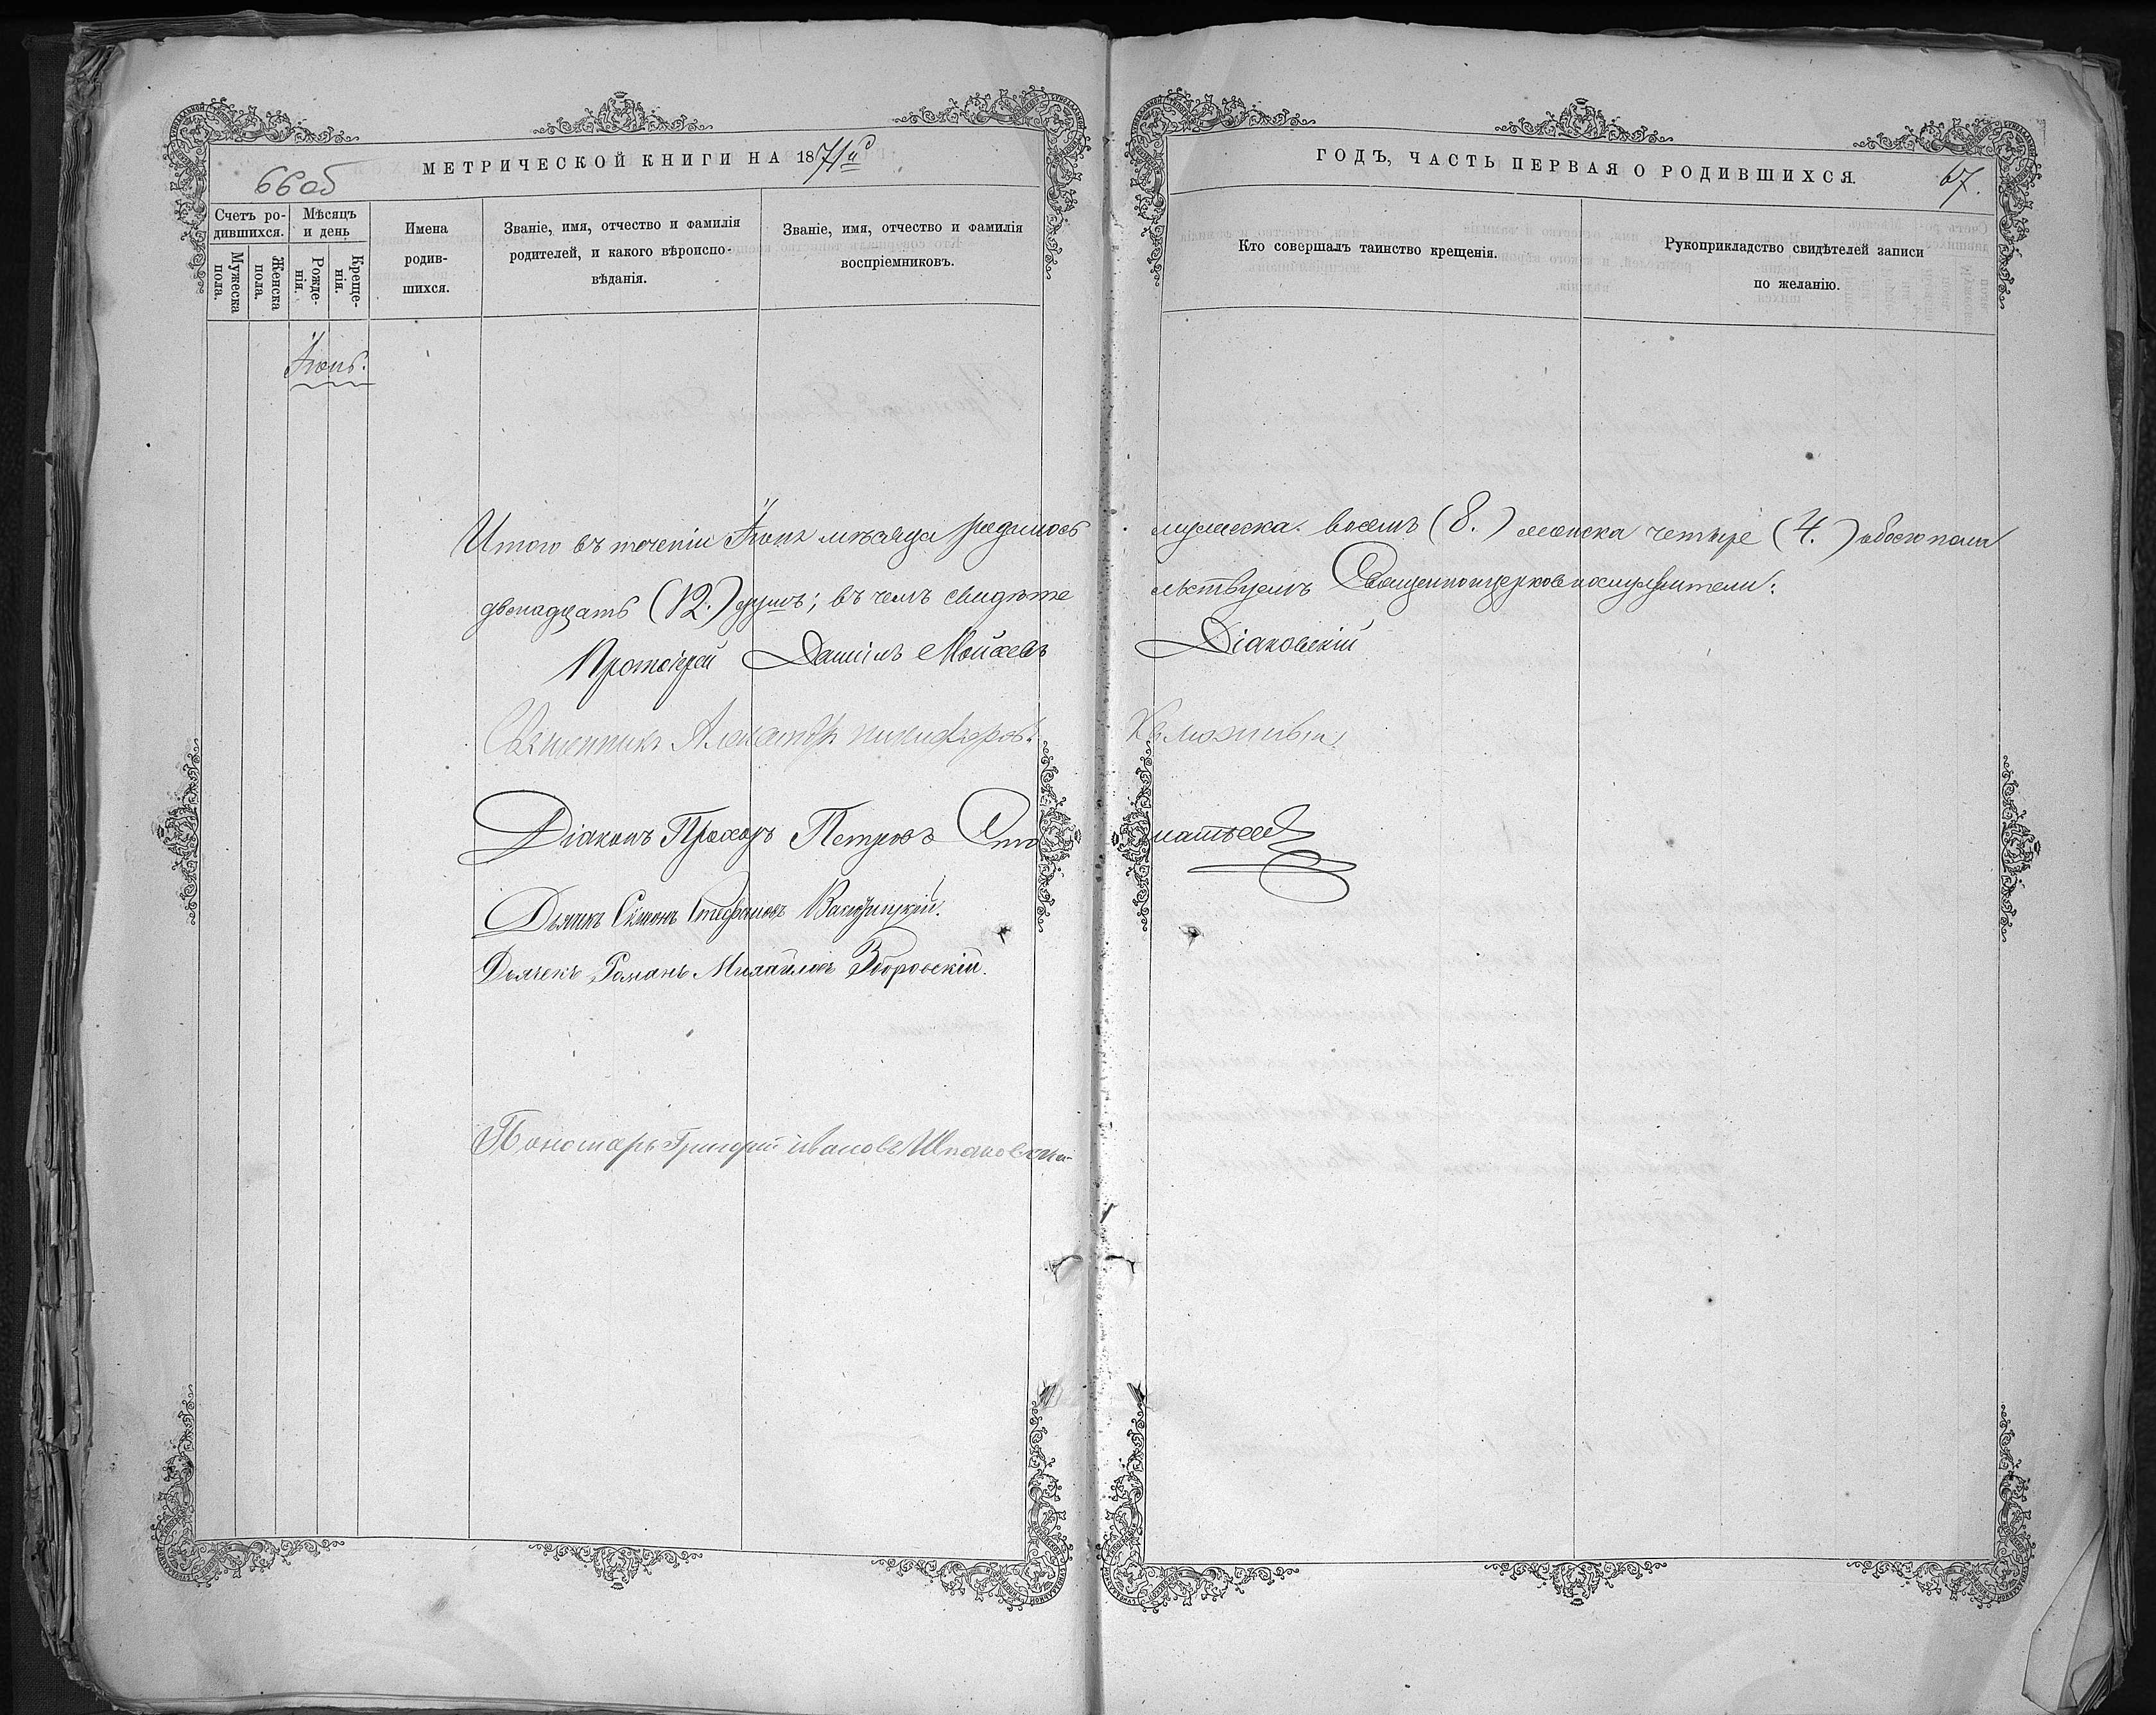 МЕТРИЧЕСКОЙ КНИГИ НА 1871й
66об
Счетъ ро-
дившихся.
Мѣсяцъ
и день
Мужеска
пола.
Женска
пола.
Рожде-
нія.
Креще-
нія.
Имена
родив-
шихся.
Званіе, имя, отчество и фамилія
родителей, и какого вѣроиспо-
вѣданія.
Званіе, имя, отчество и фамилія
воспріемниковъ.
Іюнь.
Итого въ теченіи Іюня мѣсяца родилось
двенадцать (12.) душъ; въ чемъ свидѣте
Протоіерей Даніилъ Мойсеевъ
Священникъ Александръ Никифоровъ
Діаконъ Прохоръ Петровъ Сто
Дьячекъ Симеонъ Стефановъ
Дьячекъ Романъ Михайловъ Зборовскій.
Пономарь Григорій Ивановъ Шпаковскій
ГОДЪ, ЧАСТЬ ПЕРВАЯ О РОДИВШИХСЯ.
67.
Кто совершалъ таинство крещенія.
Рукоприкладство свидѣтелей записи
по желанію.
мужеска восемь (8.) женска четыре (4.) обоего пола
льствуемъ Священноицерковнослужители:
Діаковскій